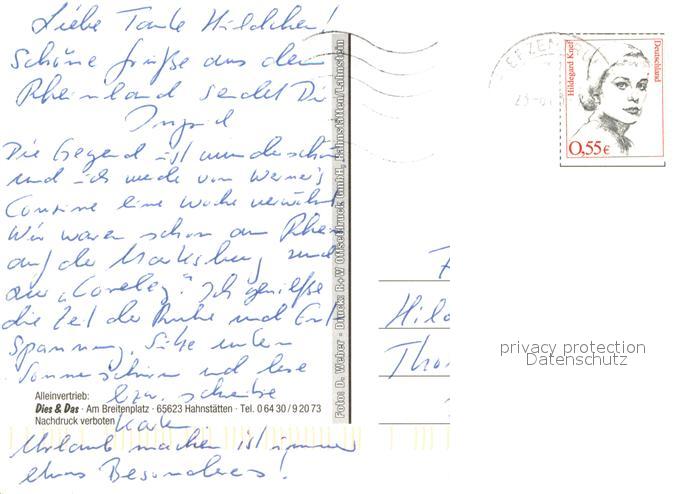 Liebe Tante Hildchen!
Schöne Grüße aus dem
Rheinland sendet Dir
Ingrid
Die Gegend ist wunderschön
und ich werde von Werner's
Cousine eine Woche verwöhnt.
Wir waren schon am Rhein
auf der Marksburg und
zur „Loreley". Ich genieße
die Zeit der Ruhe und Ent
Spannung. Sitze unterm
Sonnenschirm und lese
bzw. schreibe
Karten
Urlaub machen ist immer
etwas Besonderes!
Alleinvertrieb:
Dies & Das · Am Breitenplatz · 65623 Hahnstätten · Tel. 0 64 30 / 9 20 73
Nachdruck verboten
Foto: D. Weber · Druck: R+W Offsetdruck GmbH, Hahnstätten/Lahnstein
Hildegard Knef
Deutschland
0,55€
Hild
Tho
privacy protection
Datenschutz